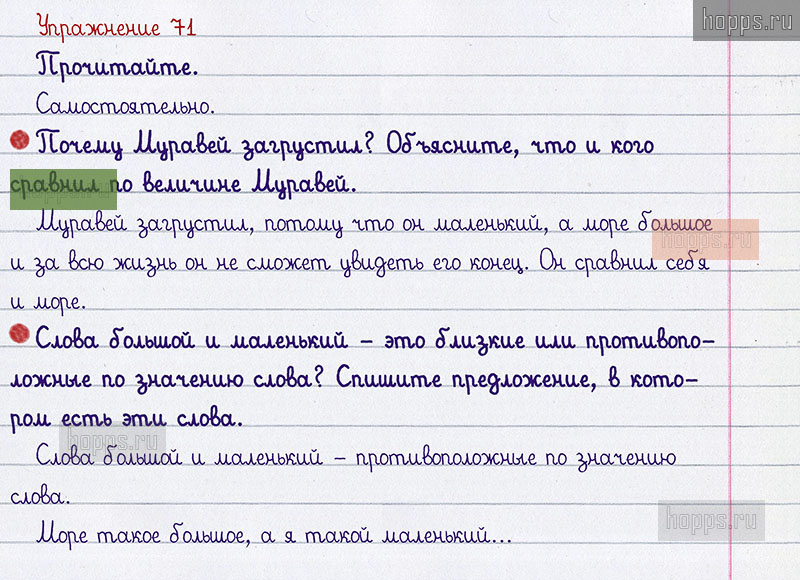 hopps.ru
Упражнение 71
Прочитайте.
Самостоятельно.
Почему Муравей загрустил? Объясните, что и кого
сравнил по величине Муравей.
Муравей загрустил, потому что он маленький, а море большое
hopps.ru
и за всю жизнь он не сможет увидеть его конец. Он сравнил себя
и море.
Слова большой и маленький – это близкие или противопо–
ложные по значению слова? Спишите предложение, в кото–
ром есть эти слова.
hopps.ru
Слова большой и маленький – противоположные по значению
слова.
hopps.ru
Море такое большое, а я такой маленький...